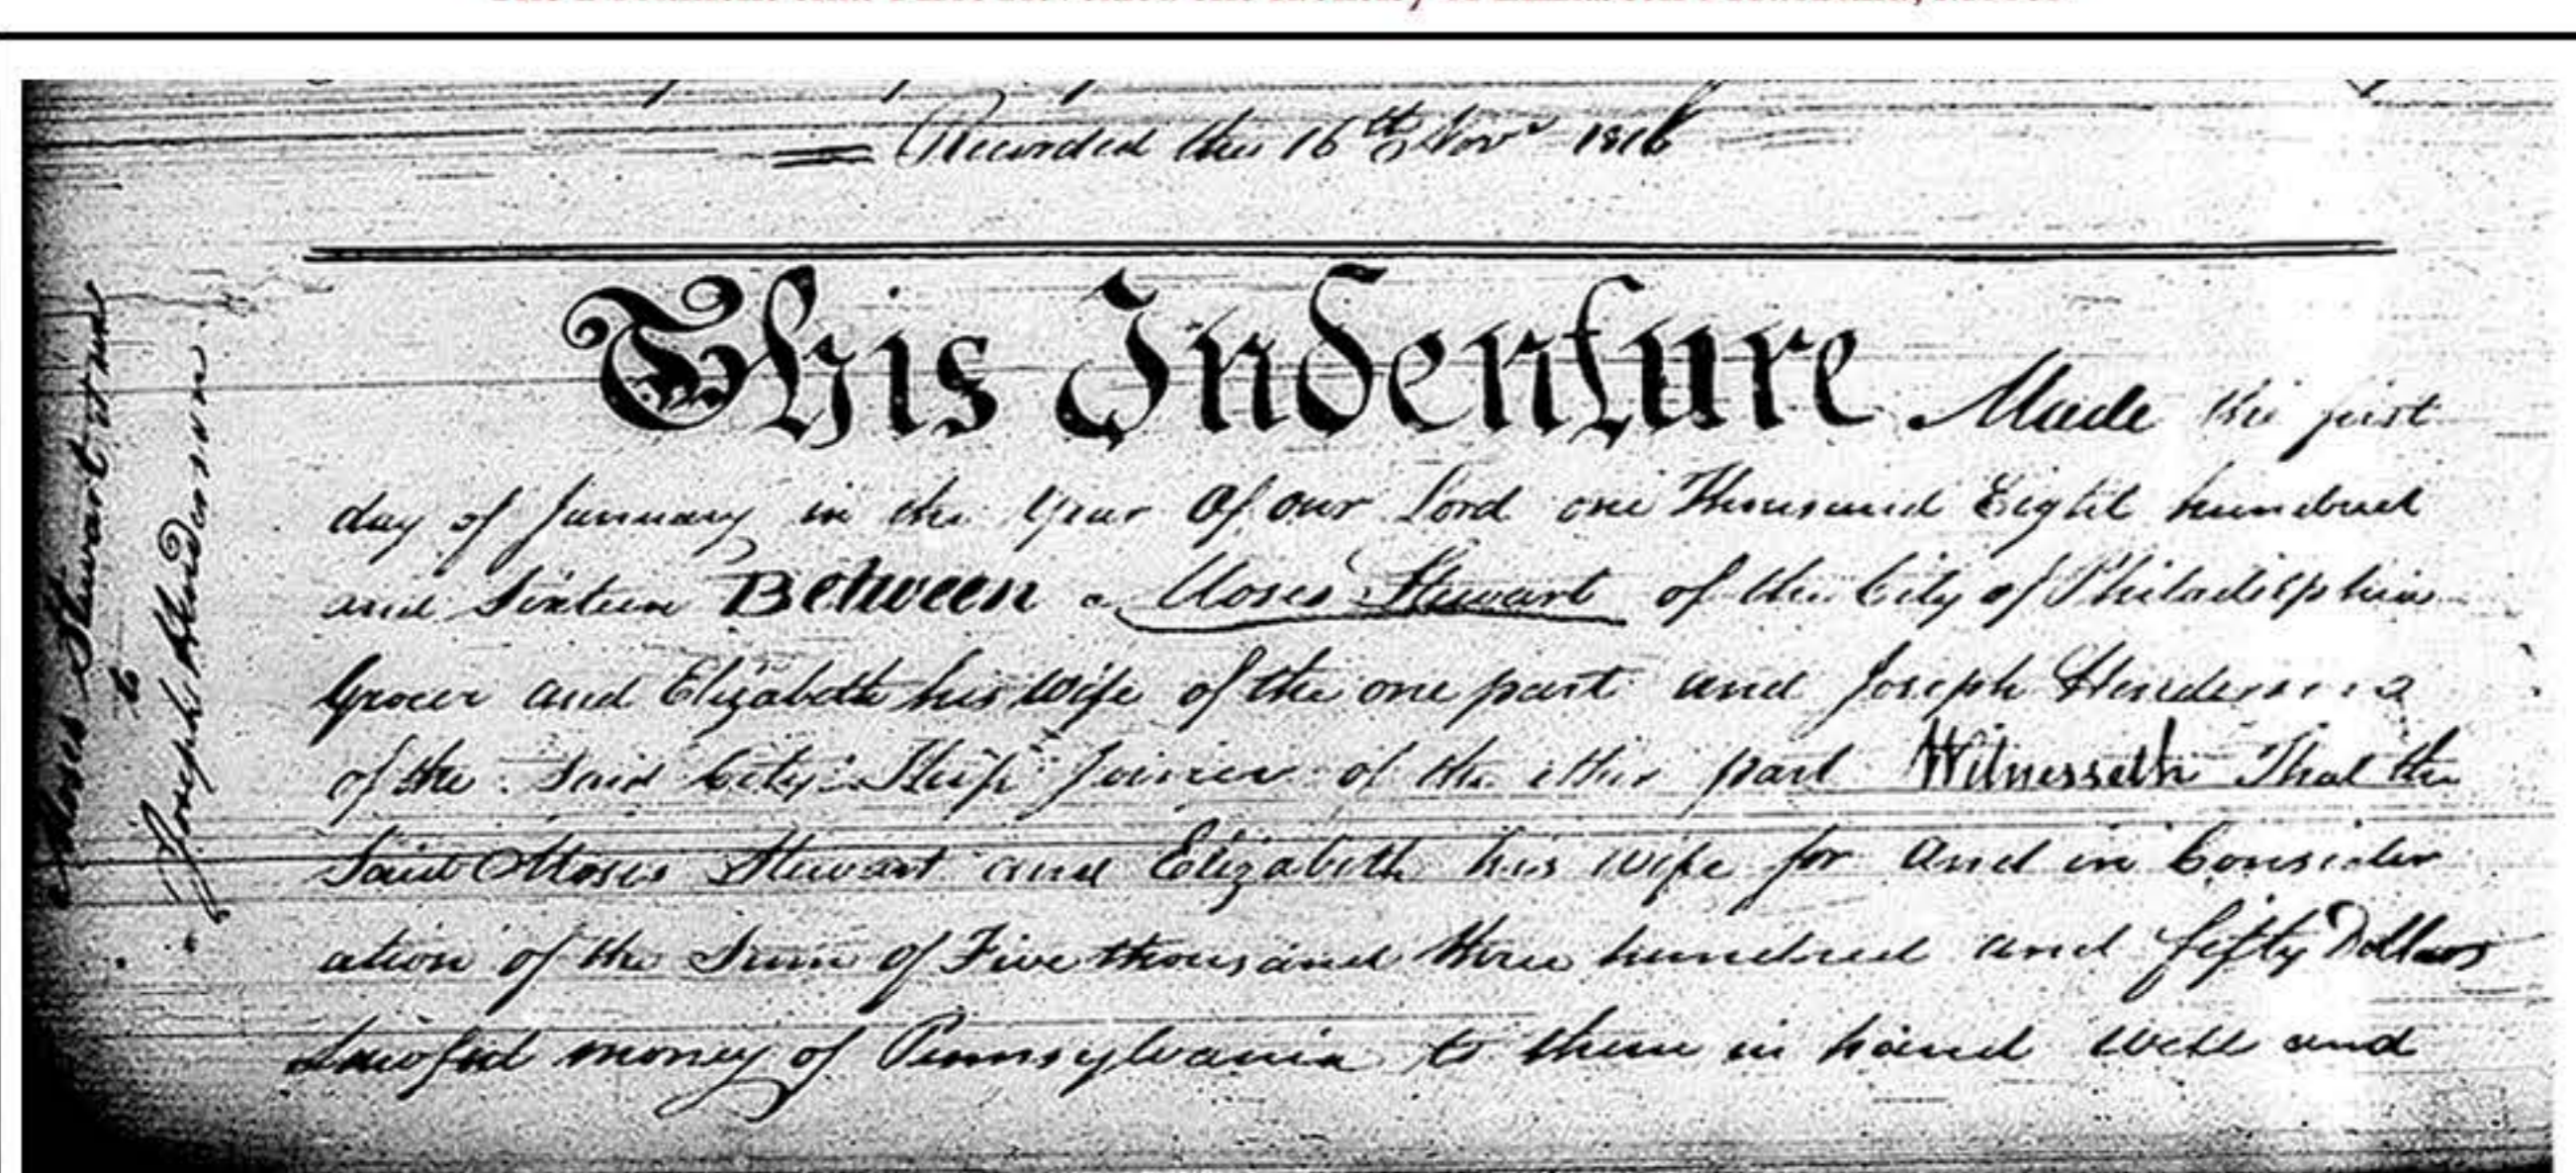 Recorded the 16th Novr 1816
This Indenture Made the first
day of January in the Year Of our Lord one Thousand Eight hundred
and Sixteen Between Moses Stewart of the City of Philadelphia
Grocer and Elizabeth his wife of the one part and Joseph Henderson
of the Said City Ship Joiner of the other part Witnesseth That the
Said Moses Stewart and Elizabeth his wife for and in Consider
ation of the Sum of Five thousand three hundred and fifty Dollars
Lawful money of Pennsylvania to them in hand well and
Moses Stewart
to
Joseph Henderson